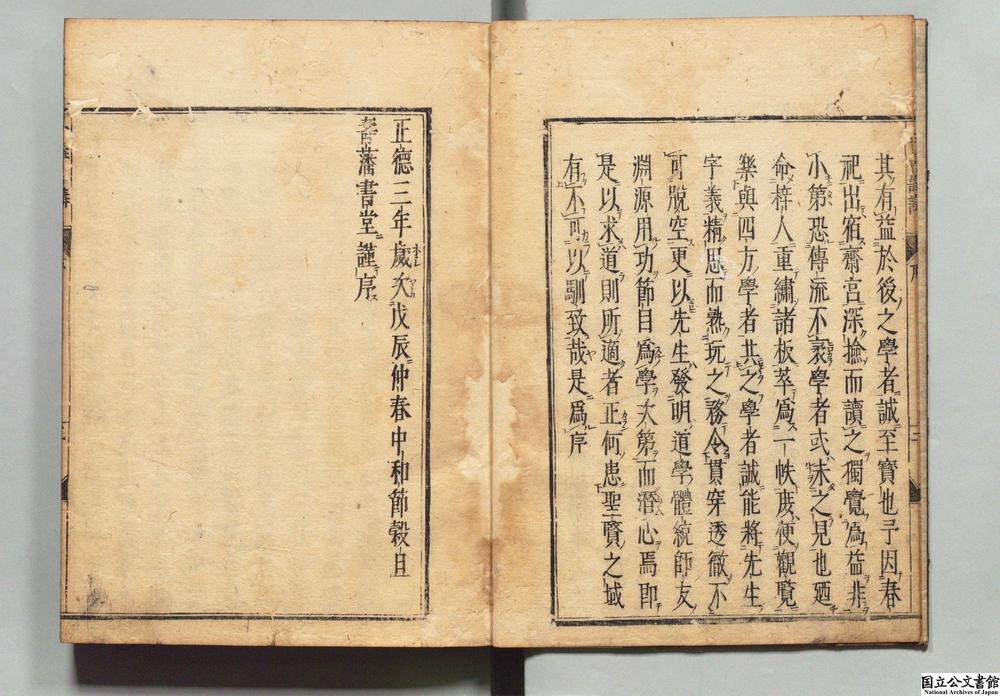 其有益於後之學者誠至寶也予因春
祀出宿齋宮深撿而讀之獨覺爲益非
小第恐傳流不衮學者或未之見也廼
命梓人重繡諸板萃爲一帙庻便觀覧
樂與四方學者共之學者誠能將先生
字義精思而熟玩之務令貫穿透徹不
可脫空更以先生發明道學體統師友
淵源用功節目爲學次第而潛心焉即
是以求道則所適者正何患聖賢之域
有不可以馴致哉是爲序
正德三年歲次戊辰仲春中和節穀旦
書藩書堂謹序
国立公文書館
National Archives of Japan